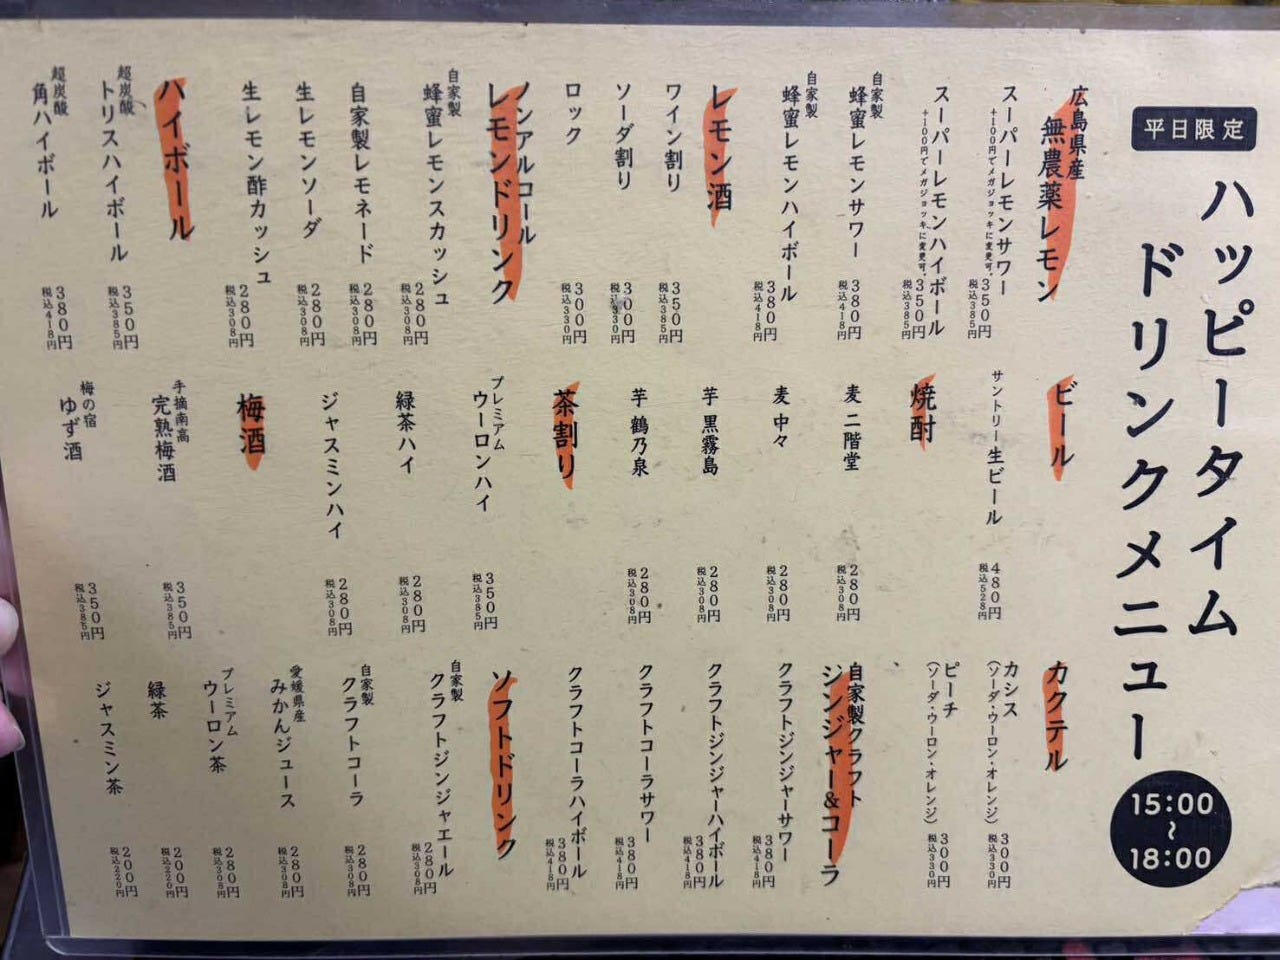 平日限定
ハッピータイム
ドリンクメニュー
15:00
〜
18:00
広島県産
無農薬レモン
スーパーレモンサワー
+100円でメガジョッキに変更可。
350円
税込385円
スーパーレモンハイボール
+100円でメガジョッキに変更可。
350円
税込385円
自家製
蜂蜜レモンサワー
380円
税込418円
自家製
蜂蜜レモンハイボール
380円
税込418円
レモン酒
ワイン割り
350円
税込385円
ソーダ割り
300円
税込330円
ロック
300円
税込330円
ノンアルコール
レモンドリンク
自家製
蜂蜜レモンスカッシュ
280円
税込308円
自家製レモネード
280円
税込308円
生レモンソーダ
280円
税込308円
生レモン酢カッシュ
280円
税込308円
ハイボール
超炭酸
トリスハイボール
350円
税込385円
超炭酸
角ハイボール
380円
税込418円
ビール
サントリー生ビール
480円
税込528円
焼酎
麦 二階堂
280円
税込308円
麦 中々
280円
税込308円
芋 黒霧島
280円
税込308円
芋 鶴乃泉
280円
税込308円
茶割り
プレミアム
ウーロンハイ
350円
税込385円
緑茶ハイ
280円
税込308円
ジャスミンハイ
280円
税込308円
梅酒
手摘南高
完熟梅酒
350円
税込385円
梅の宿
ゆず酒
350円
税込385円
カクテル
カシス
(ソーダ・ウーロン・オレンジ)
300円
税込330円
ピーチ
(ソーダ・ウーロン・オレンジ)
300円
税込330円
自家製クラフト
ジンジャー&コーラ
クラフトジンジャーサワー
380円
税込418円
クラフトジンジャーハイボール
380円
税込418円
クラフトコーラサワー
380円
税込418円
クラフトコーラハイボール
380円
税込418円
ソフトドリンク
自家製
クラフトジンジャエール
280円
税込308円
自家製
クラフトコーラ
280円
税込308円
愛媛県産
みかんジュース
280円
税込308円
プレミアム
ウーロン茶
280円
税込308円
緑茶
200円
税込220円
ジャスミン茶
200円
税込220円